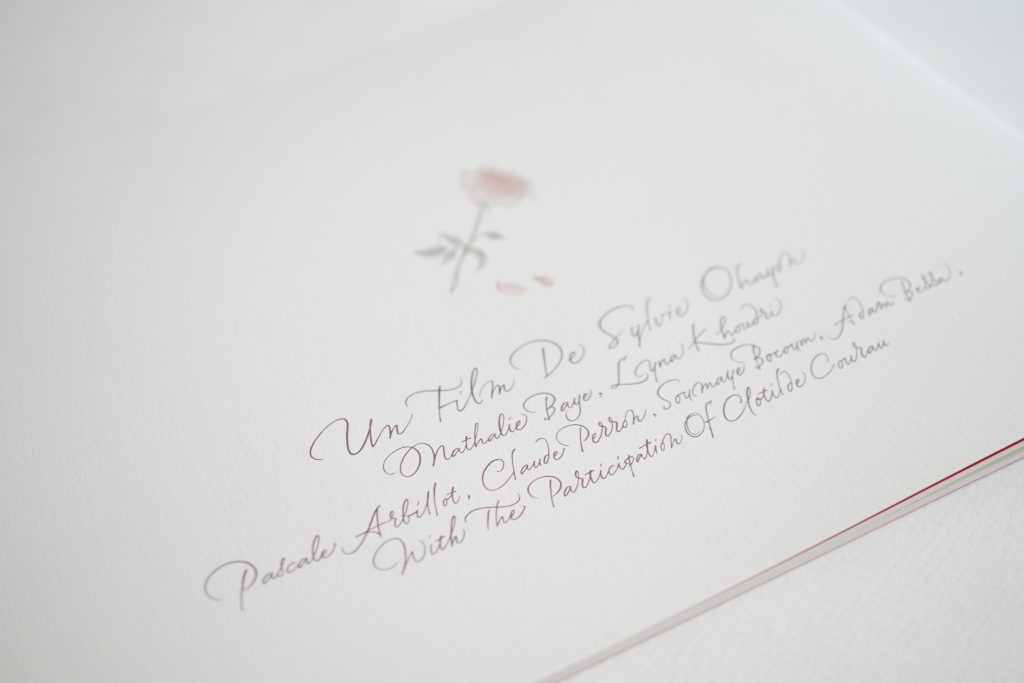 Un Film De Sylvie Ohayon
Nathalie Baye, Lyna Khoudri
Pascale Arbillot, Claude Perron, Soumaye Bocoum, Adam Bessa,
With The Participation Of Clotilde Courau